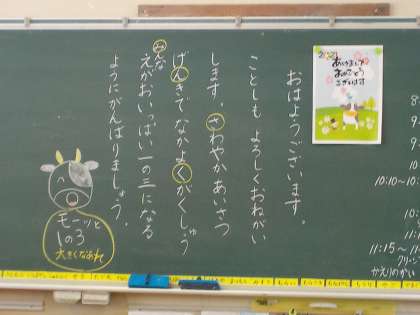 おはようございます。
ことしも よろしくおねがい
します。さわやかあいさつ
げんきで なかよくがくしゅう
みんな
えがおいっぱい 一の三になる
ようにがんばりましょう。
モーッと
1の3
大きくなあれ
2021
あけまして
おめでとう
ございます
10:10~10:
11:15~
かえりのかい